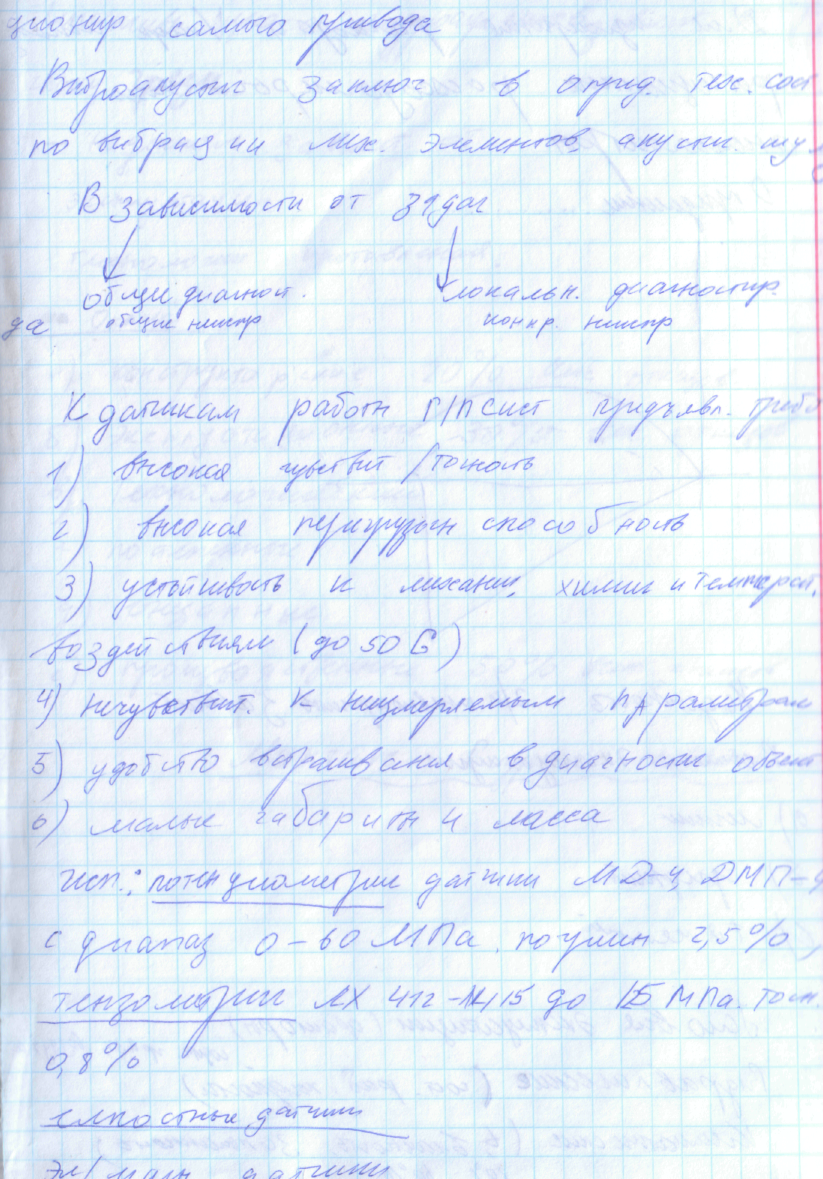 ционир самого привода
Виброакустич заключ в опред. тех. сост
по вибрации мех. элементов, акустич. шу
В зависимости от задач
общее диагност. локальн. диагностир.
да общие неиспр конкр. неиспр
К датчикам работы Г/ПСист предъявл. треб
1) высокая чувствит /точность
2) высокая перегрузочн способность
3) устойчивость к механич, химич и температ.
воздействиям (до 50 G)
4) нечувствит. к неизмеряемым параметрам
5) удобство встраивания в диагностич объект
6) малые габариты и масса
Исп.: потенциометрич датчики МД-4, ДМП-4
с диапаз 0-60 МПа. 2,5%
тензометрич до МПа. точн.
0,8%
емкостные датчики
эл/магн датчики